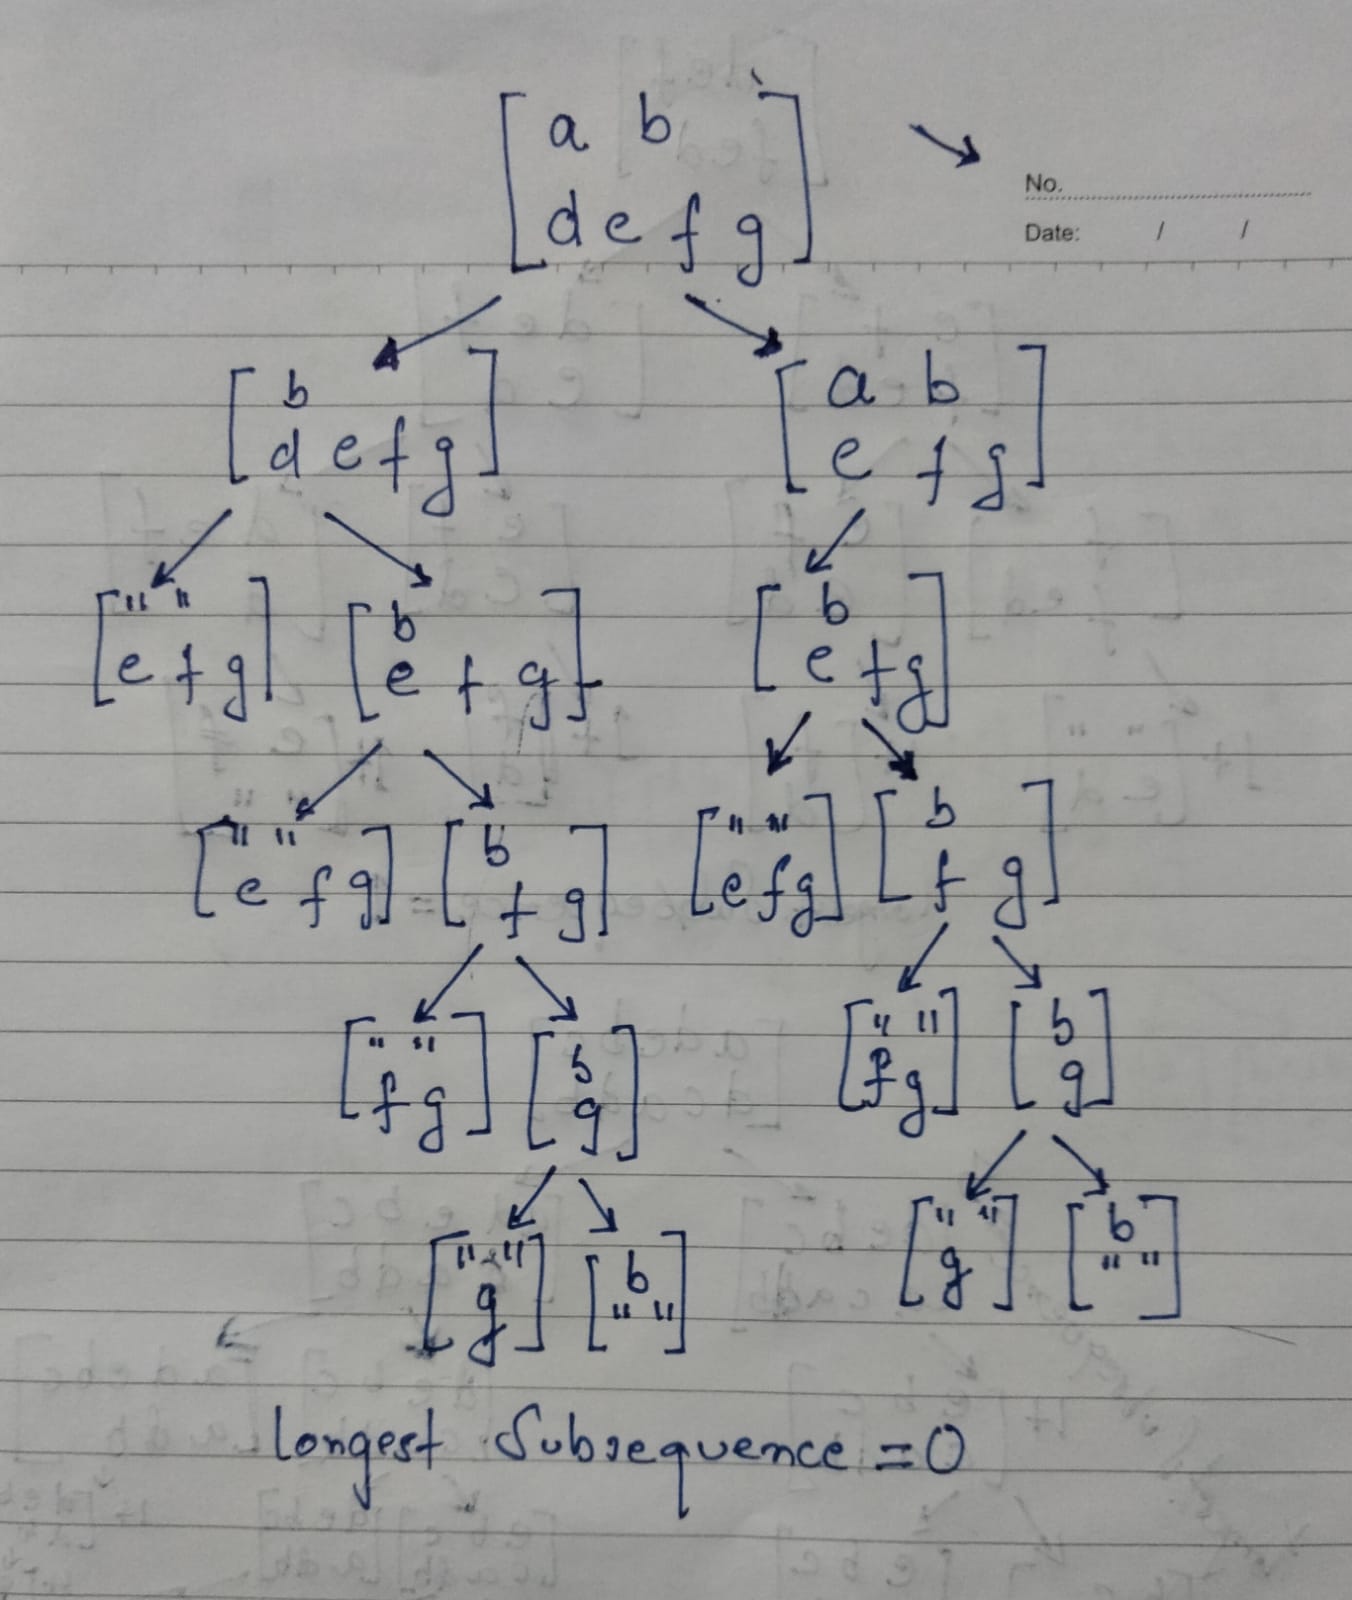 a b
d e f g
No.
Date: / /
b
d e f g
a b
e f g
" "
e f g
b
e f g
b
e f g
" "
e f g
b
f g
" "
e f g
b
f g
" "
f g
b
g
" "
f g
b
g
" "
g
b
" "
" "
g
b
" "
longest Subsequence = 0